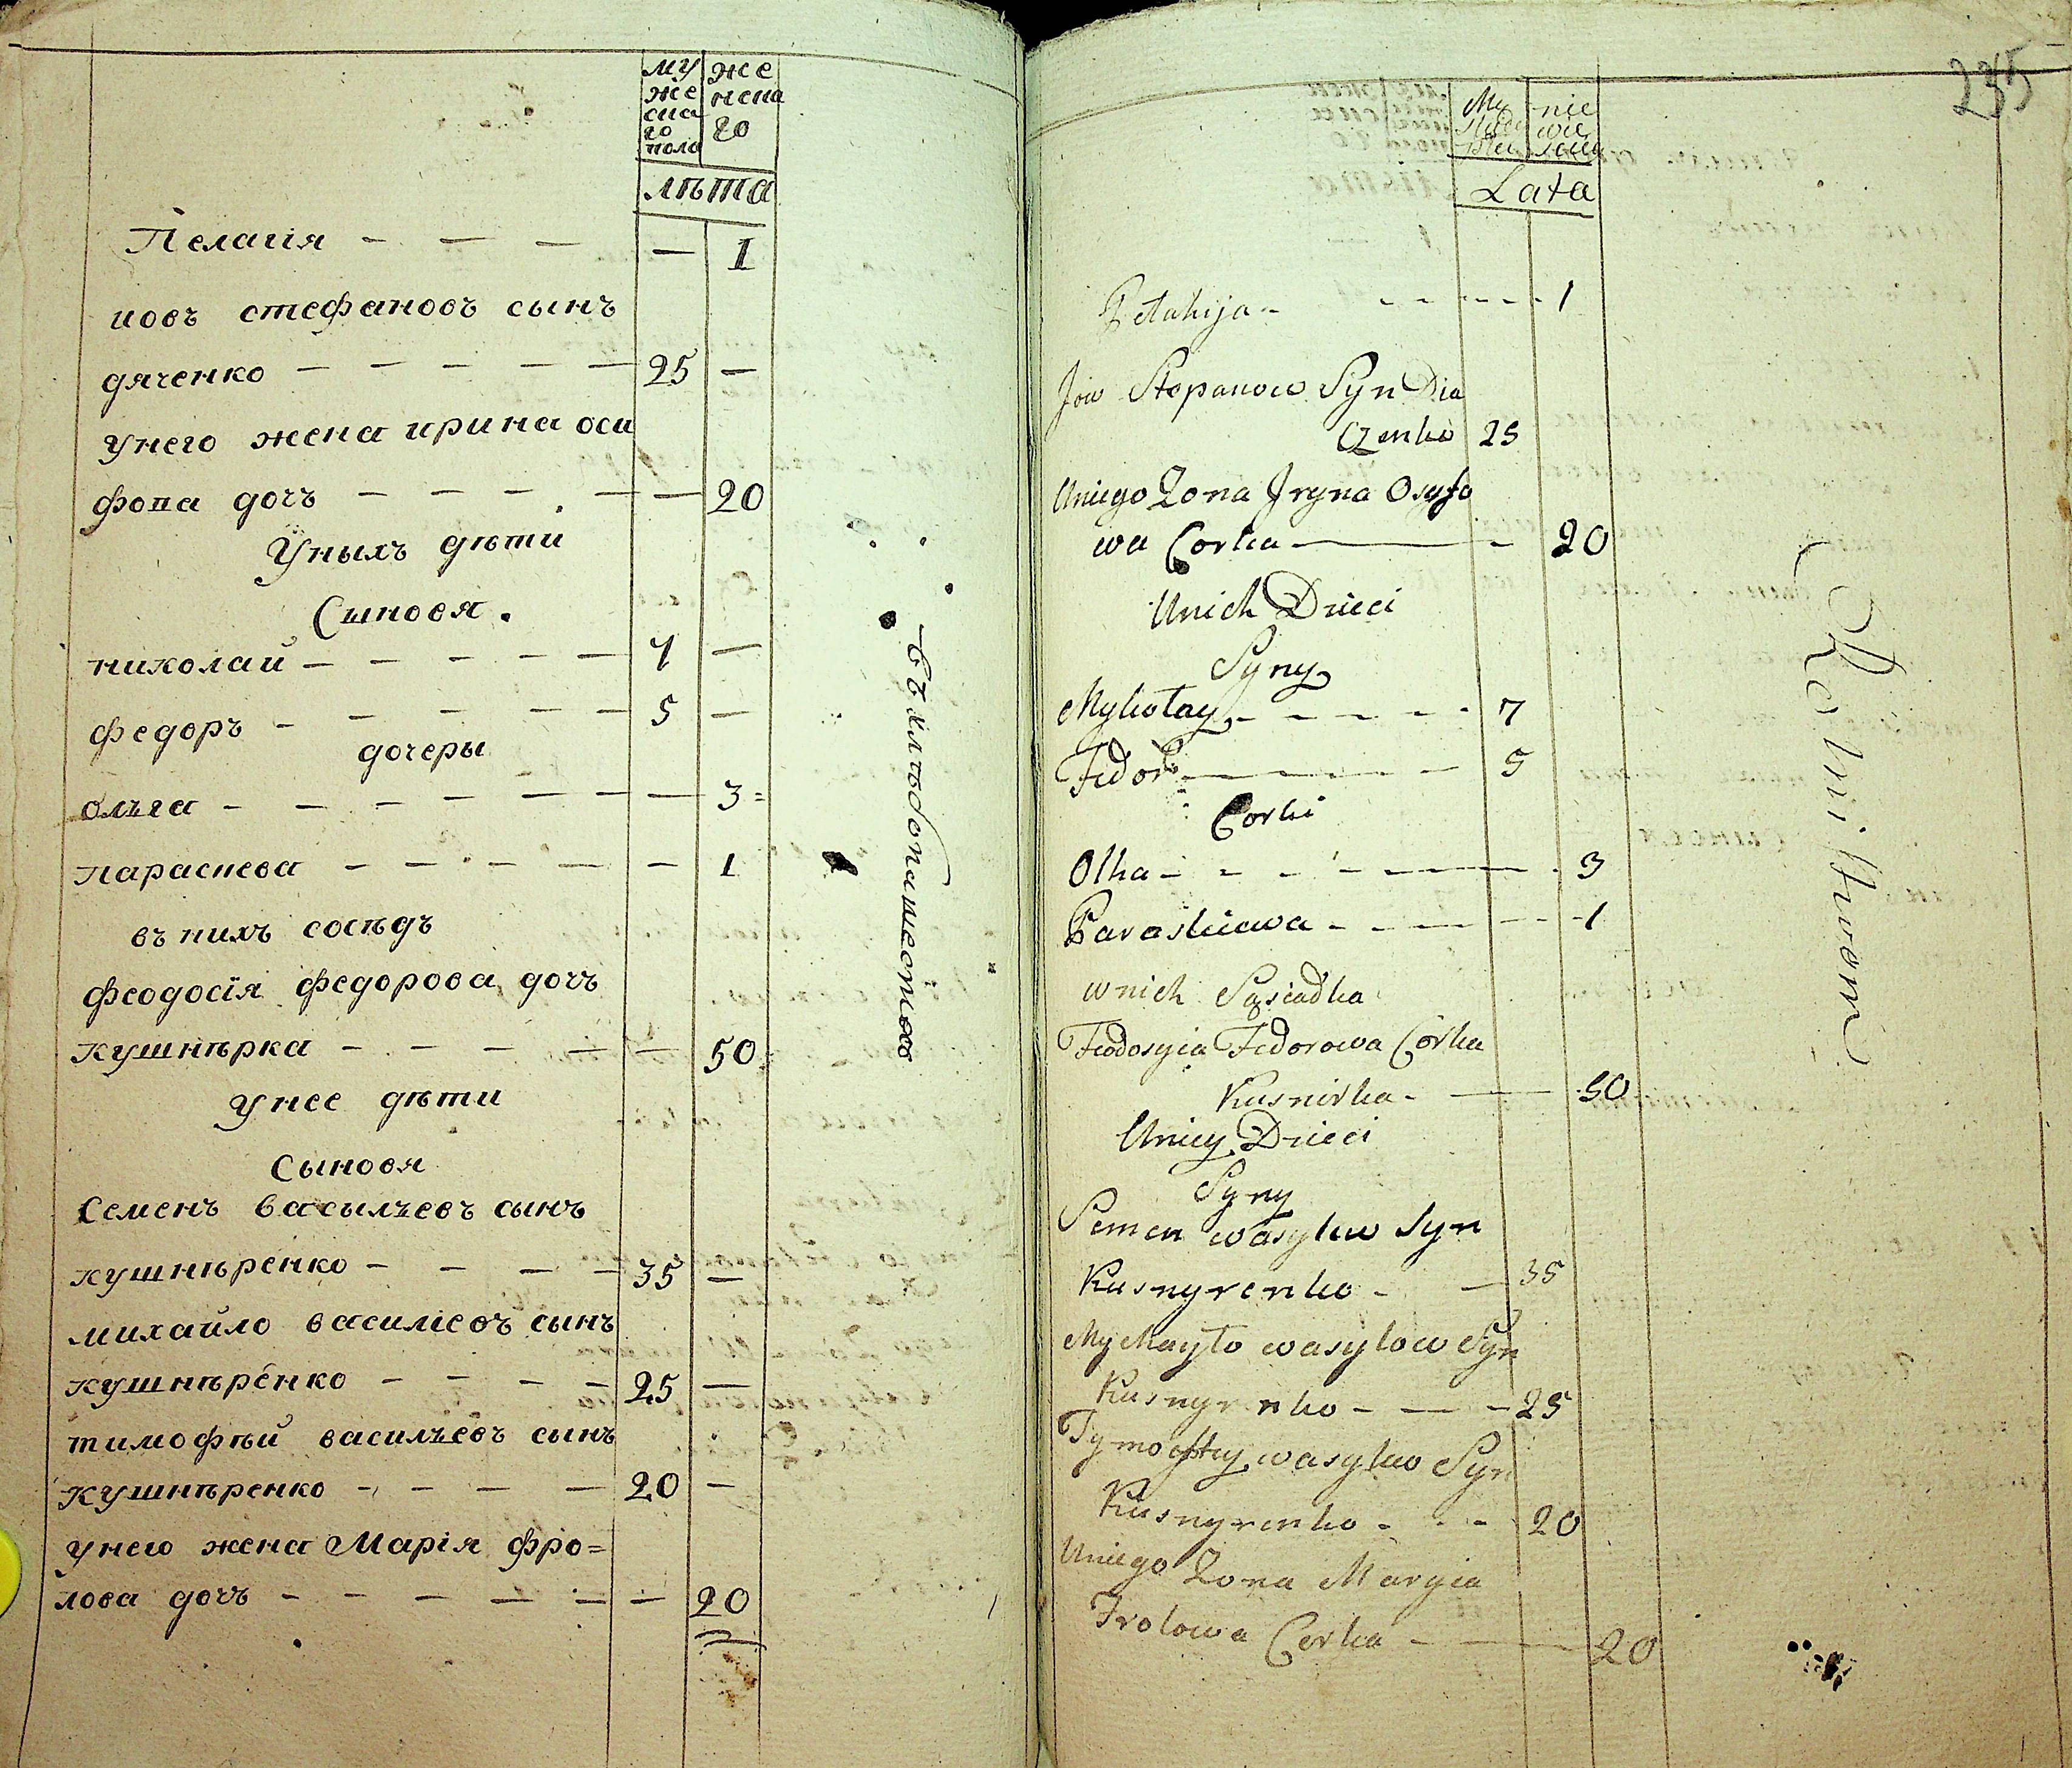 му же
же нска
ска го
го
пола
лѣта
Пелагія — — — — 1
иовъ стефановъ сынъ
дяченко — — — — — 25 —
унего жена ирина оси
фова дочъ — — — — — 20
Уныхъ дѣти
Сыновя.
николай — — — — — 7 —
федоръ — — — — — 5 —
дочеры
олъга — — — — — — — 3
параскева — — — — — — 1
въ нихъ сосѣдъ
феодосія федорова дочъ
кушнѣрка — — — — — 50
Унее дѣти
Сыновя
Семенъ васылъевъ сынъ
кушнѣренко — — — — 35 —
михайло василіевъ сынъ
кушнѣренко — — — — 25 —
тимофѣй василъевъ сынъ
кушнѣренко — — — — 20 —
унего жена Марія фро=
лова дочъ — — — — — — 20
235
Lata
Pelahija - - - - - 1
Jow Stepanow Syn Dia
czenko 25
Uniego Zona Jryna Osyfo
wa Corka — - 20
Unich Dzieci
Syny
Mykołay - - - - - 7
Fedor — — — — — 5
Corki
Olha - - - - — — - 3
Paraskiewa - - - — - - 1
wnich Sąsiadka
Feodosyia Fedorowa Corka
Kusnirka - — 50
Uniey Dzieci
Syny
Semen wasylew Syn
Kusnyrenko - — 35
Mychayło wasylow Syn
Kusnyrenko - — - 25
Tymoftey wasylew Syn
Kusnyrenko - - - 20
Uniego Zona Maryia
Frolowa Corka - — — 20